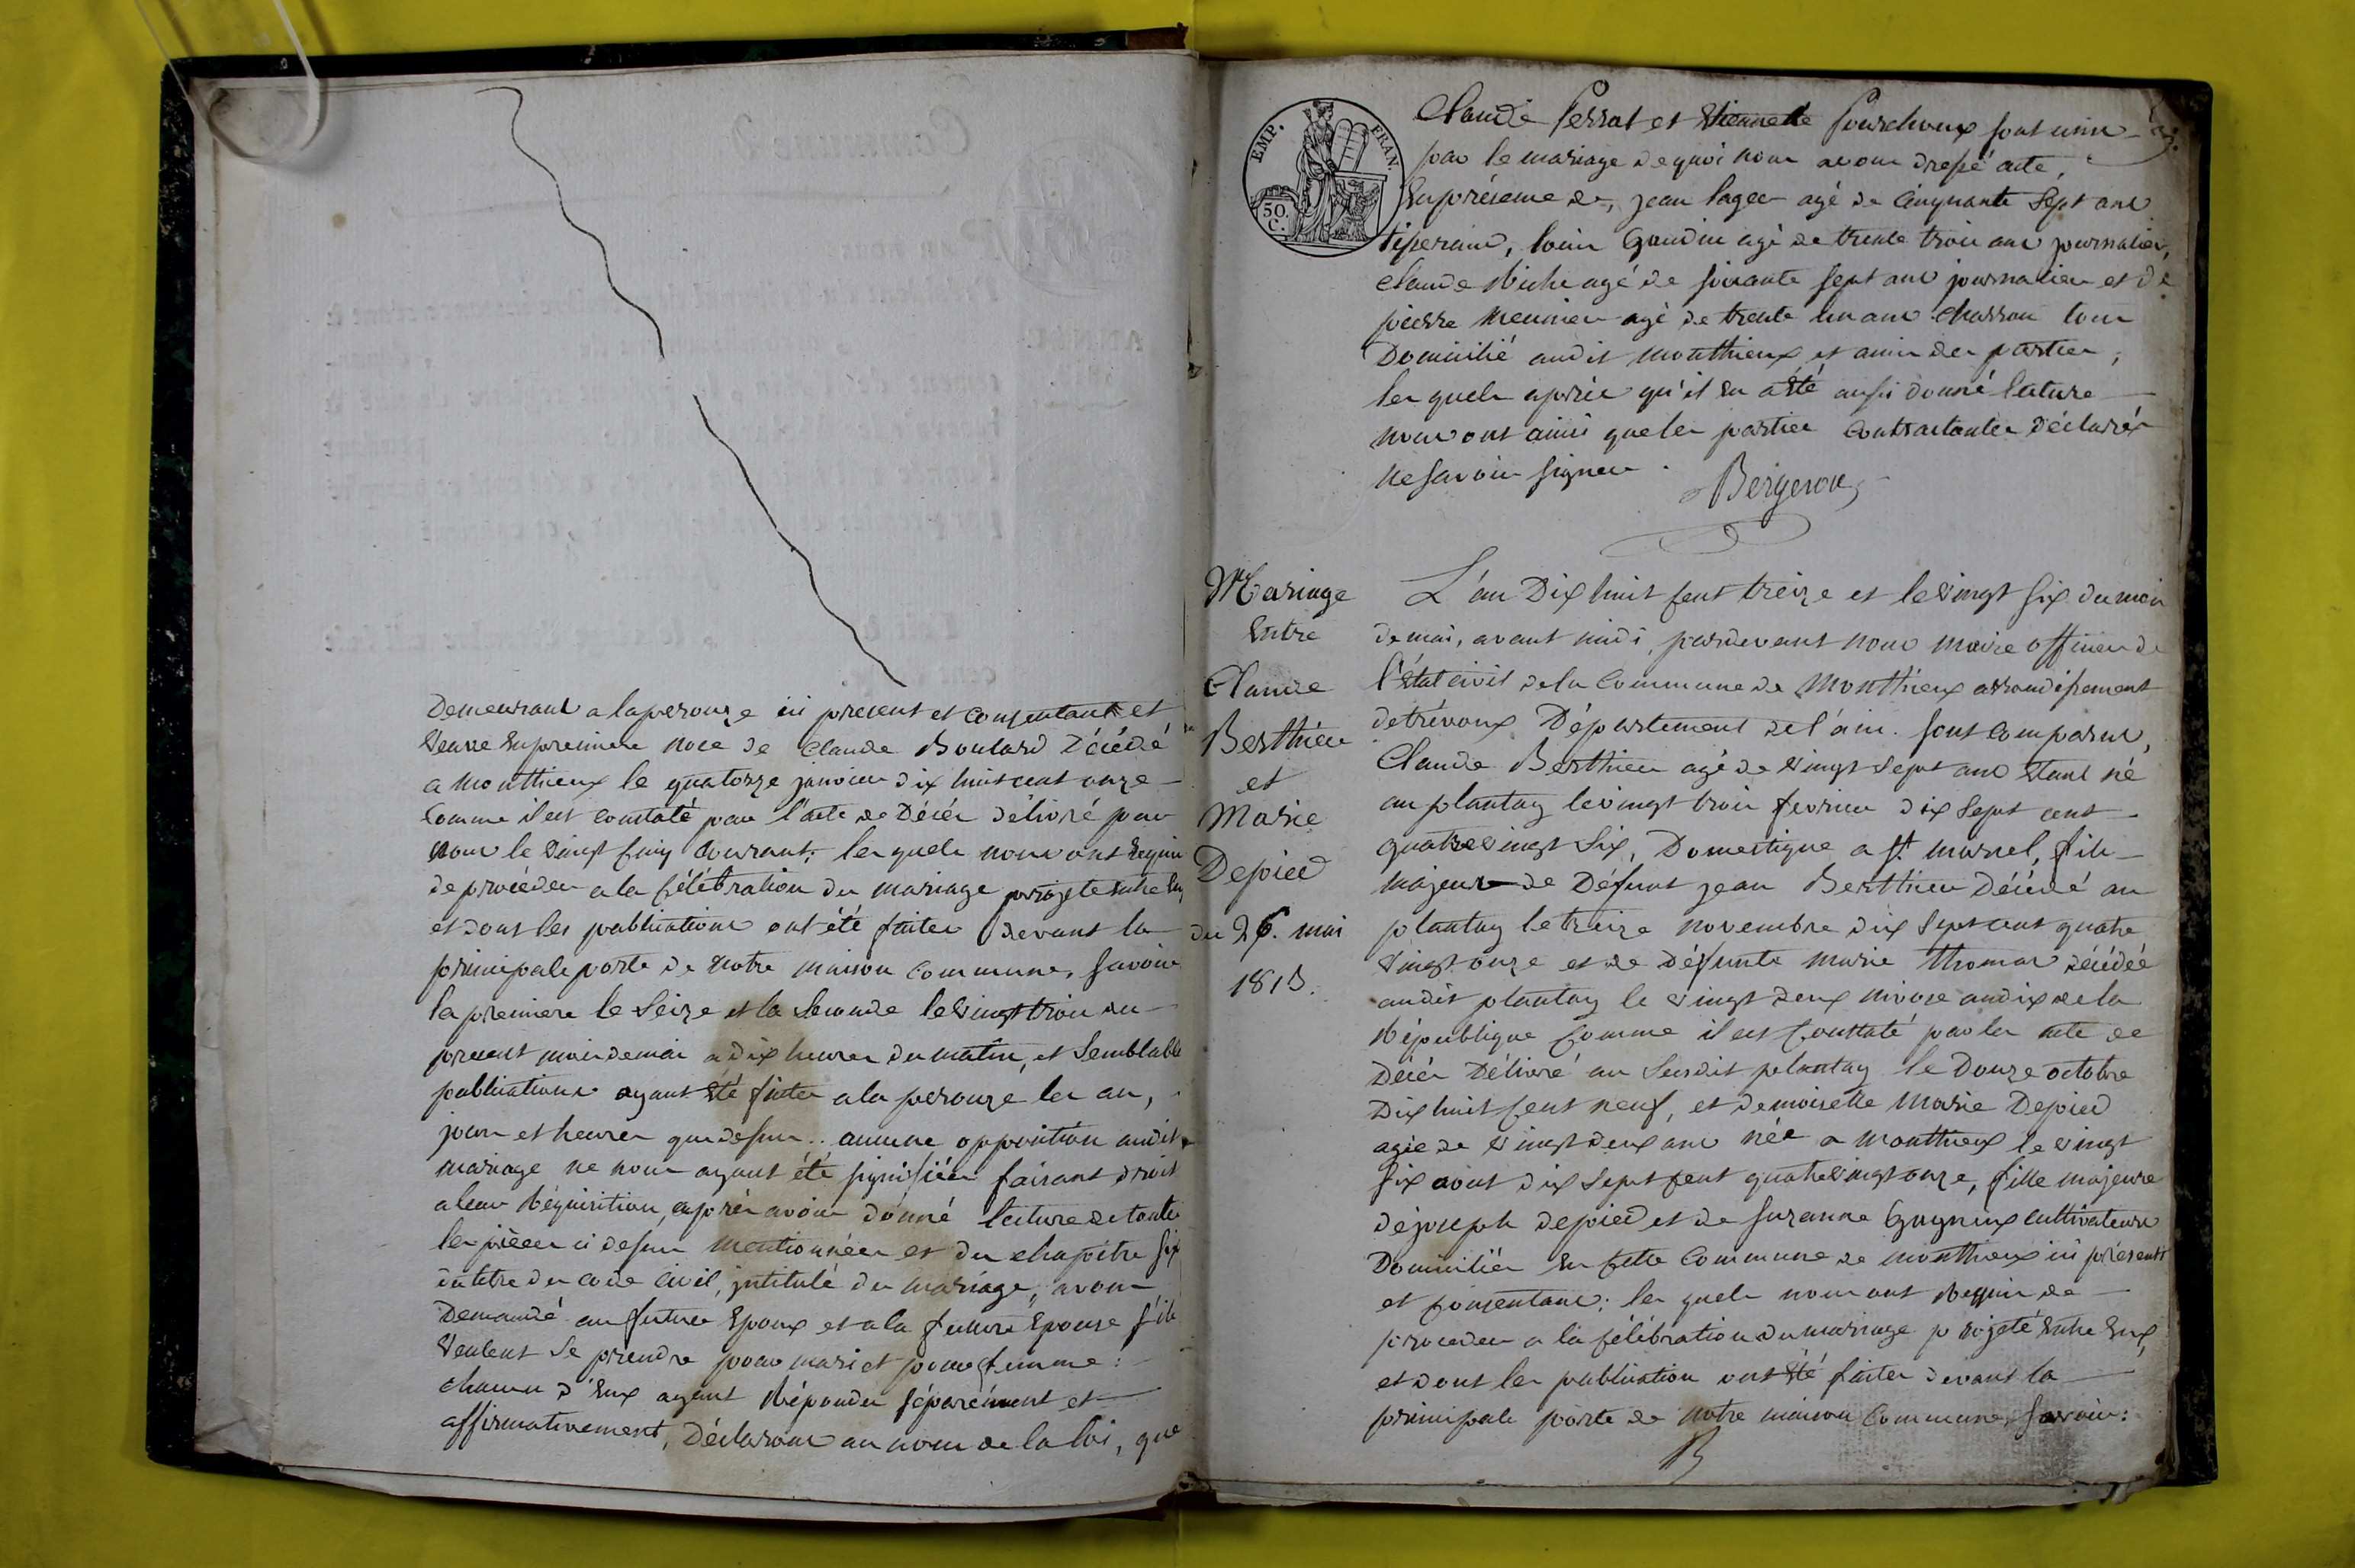 Demeurant a laperouze ici present et consentant et
Veuve En premiere noce de Claude Boulard Décédé
a Monthieux le quatorze janvier dix huit cent onze
Comme il est constaté par l'acte de Décés délivré par
nous le vingt cinq courant; les quels nous ont Requis
de proceder a la célébration du mariage projeté entre Eux
et dont les publications ont été faites devant la
principale porte de Notre maison Commune, savoir
la premiere le Seize et la Seconde le vingt trois du
present mois de mai a dix heures du matin, et Semblable
publications ayant Eté faites a la perouze les an,
jours et heures que dessus.. aucune opposition audit
mariage ne nous ayant été signifiées faisant droit
a leur Réquisition, aprés avoir donné lecture de toutes
les pièces ci dessus Mentionnées et du chapitre Six
du titre du code Civil, intitulé du mariage, avons
Demandé au futur Epoux et a la future Epouse s'ils
Veulent Se prendre pour mari et pour femme:
chacun d'Eux ayant Répondu séparément et
affirmativement, Déclarons au nom de la loi, que
EMP. FRAN.
50. C.
Claude Perrat et Etiennette Pourchoux sont unis
par le mariage de quoi nous avons dressé acte,
En présence de, jean lager agé de Cinquante Sept ans
tisserand, louis Gaudin agé de trente trois ans journalier,
Claude Riche agé de soixante sept ans journalier et de
pierre Meunier agé de trente un ans Charron tous
Domicilié audit Monthieux et amis des parties,
les quels après qu'il en a été aussi donné lecture
nous ont ainsi que les parties Contractantes Déclarés
ne savoir signer.
Bergeron
Mariage
Entre
Claude
Berthier
et
Marie
Depied
du 26. mai
1813.
L'an Dix huit cent treize et le vingt six du mois
de mai, avant midi, pardevant nous maire officier de
l'état civil de la Commune de Monthieux arrondissement
de trévoux Département de l'ain. sont Comparus,
Claude Berthier agé de vingt Sept ans Etant né
au plantay le vingt trois fevrier dix Sept cent
quatre vingt Six, Domestique a St. Marcel, fils
majeur de Défunt jean Berthier Décédé au
plantay le treize novembre dix Sept cent quatre
vingt onze et de Défunte Marie Thomas décédée
audit plantay le vingt deux nivose an dix de la
République Comme il est Constaté par les acte de
Décés Délivré au Susdit plantay le Douze octobre
Dix huit cent neuf, et demoiselle Marie Depied
agée de vingt deux ans née a Monthieux le vingt
six aout dix Sept cent quatre vingt onze, fille majeure
de joseph depied et de Suzanne Gagneux cultivateurs
Domiciliés En cette Commune de Monthieux ici présents
et consentans; les quels nous ont Requis de
proceder a la célébration du mariage projeté Entre Eux,
et dont les publication ont Eté faites devant la
principale porte de Notre maison Commune, Savoir:
B